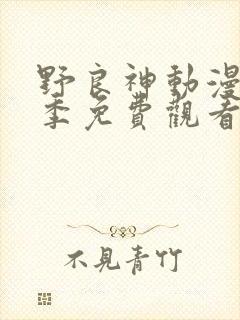 野良神動漫
季免費觀看
不見青竹